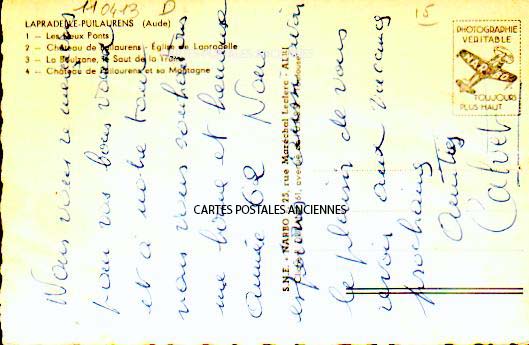 110413 D
15
LAPRADELLE-PUILAURENS (Aude)
1 - Les deux Ponts
2 - Château de Puilaurens - Église de Lapradelle
3 - La Boulzane, Saut de la
4 - Château de Puilaurens et sa Montagne
PHOTOGRAPHIE
VÉRITABLE
TOUJOURS
PLUS HAUT
S.N.E. - NARBO - 25, rue Maréchal Leclerc - ALBI
CARTES POSTALES ANCIENNES
Nous vous remercions
pour vos bons vœux
et à notre tour
nous vous souhaitons
une bonne et heureuse
année 62 Nous
espérons aussi avoir
le plaisir de vous
revoir aux vacances
prochaines
Amitiés
Calvet